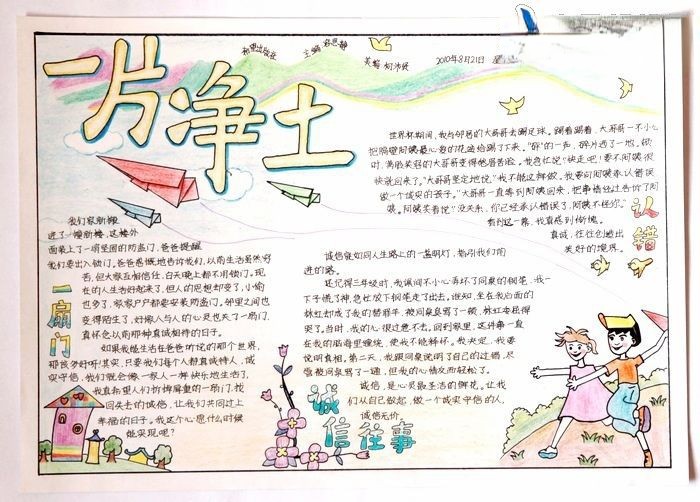 一片净土
希望出版社
主编
美编
2010年8月21日
世界杯期间,我与邻居的大哥哥去踢足球。踢着踢着,大哥哥一不小心
把隔壁阿姨最心爱的花盆给踢了下来。“砰”的一声,碎片洒了一地。顿
时,满脸笑容的大哥哥变得愁眉苦脸。我急忙说:“快走吧!要不阿姨很
快就回来了。”大哥哥坚定地说:“我不能这样做。我要向阿姨承认错误
做一个诚实的孩子。”大哥哥一直等到阿姨回来,把事情经过告诉了阿
姨。阿姨笑着说:“没关系,你已经承认错误了,阿姨不怪你。”
看到这一幕,我真感到惭愧。
真诚,往往创造出
美好的境界。
认错
我们家新搬
进了一幢新楼,这楼外
面装上了一扇坚固的防盗门,爸爸提醒
我们要出入锁门。爸爸感慨地告诉我们,以前生活虽然穷
苦,但大家互相信任,白天晚上都不用锁门。现
在的人生活好起来了,但人的思想却变了,小偷
也多了,家家户户都要安装防盗门。邻里之间也
变得陌生了,好像人与人的心灵也关了一扇门,
真怀念以前那种真诚相待的日子。
如果我能生活在爸爸所说的那个世界,
那该多好呀!其实,只要我们每个人都真诚待人,诚
实守信,我们就会像一家人一样快乐地生活了,
我真希望人们拆掉厚重的一扇门,找
回失去的诚信,让我们共同过上
幸福的日子。我这个心愿什么时候
能实现呢?
一扇门
诚信就如同人生路上的一盏明灯,指引我们前
进的路。
还记得三年级时,我课间不小心弄坏了同桌的钢笔,我一
下子慌了神,急忙放下钢笔走了出去。谁知,坐在我后面的
林虹却成了我的替罪羊,被同桌骂了一顿,林虹委屈得
哭了。当时,我的心很过意不去。回到家里,这件事一直
在我的脑海里缠绕,使我不能释怀。我决定,我要
说明真相。第二天,我跟同桌说明了自己的过错,尽
管被同桌骂了一通,但我的心情反而轻松了。
诚信,是心灵最圣洁的鲜花。让我
们从自己做起,做一个诚实守信的人,
诚信无价。
诚信往事